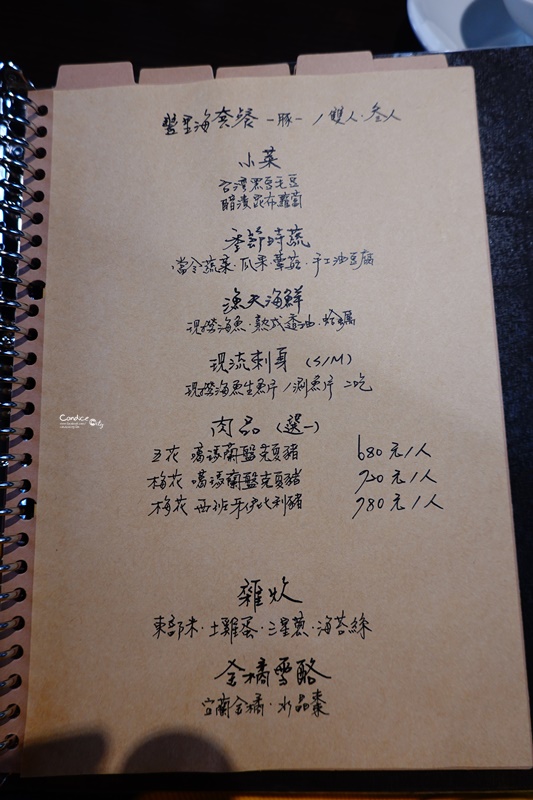 海套餐 -豚- / 雙人·叁人
小菜
台灣黑豆毛豆
醋漬昆布蘿蔔
季節時蔬
當令蔬菜·瓜果·蕈菇·手工油豆腐
漁夫海鮮
現撈海魚·熟式透油·蛤蠣
現流刺身 (S/M)
現撈海魚生魚片 / 涮魚片 二吃
肉品 (選一)
五花 噶瑪蘭黑豚 680元/人
梅花 噶瑪蘭黑豚 720元/人
梅花 西班牙伊比利豬 780元/人
雜炊
東部米·土雞蛋·三星蔥·海苔絲
金橘雪酪
宜蘭金橘·水晶棗
Candice City